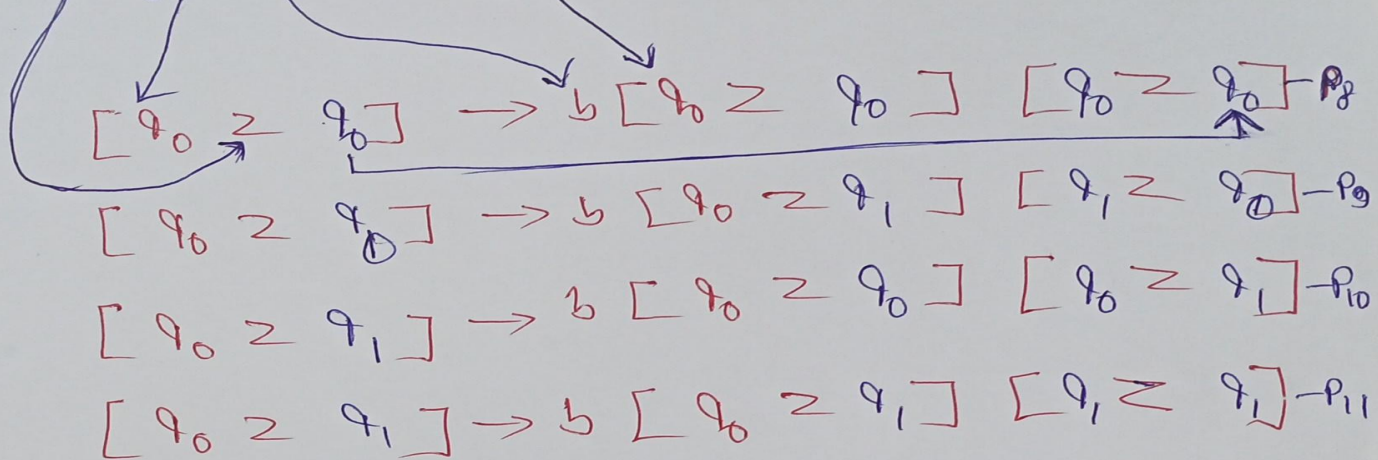 [q₀ z q₀] → b [q₀ z q₀] [q₀ z q₀] – P₈
[q₀ z q₀] → b [q₀ z q₁] [q₁ z q₀] – P₉
[q₀ z q₁] → b [q₀ z q₀] [q₀ z q₁] – P₁₀
[q₀ z q₁] → b [q₀ z q₁] [q₁ z q₁] – P₁₁